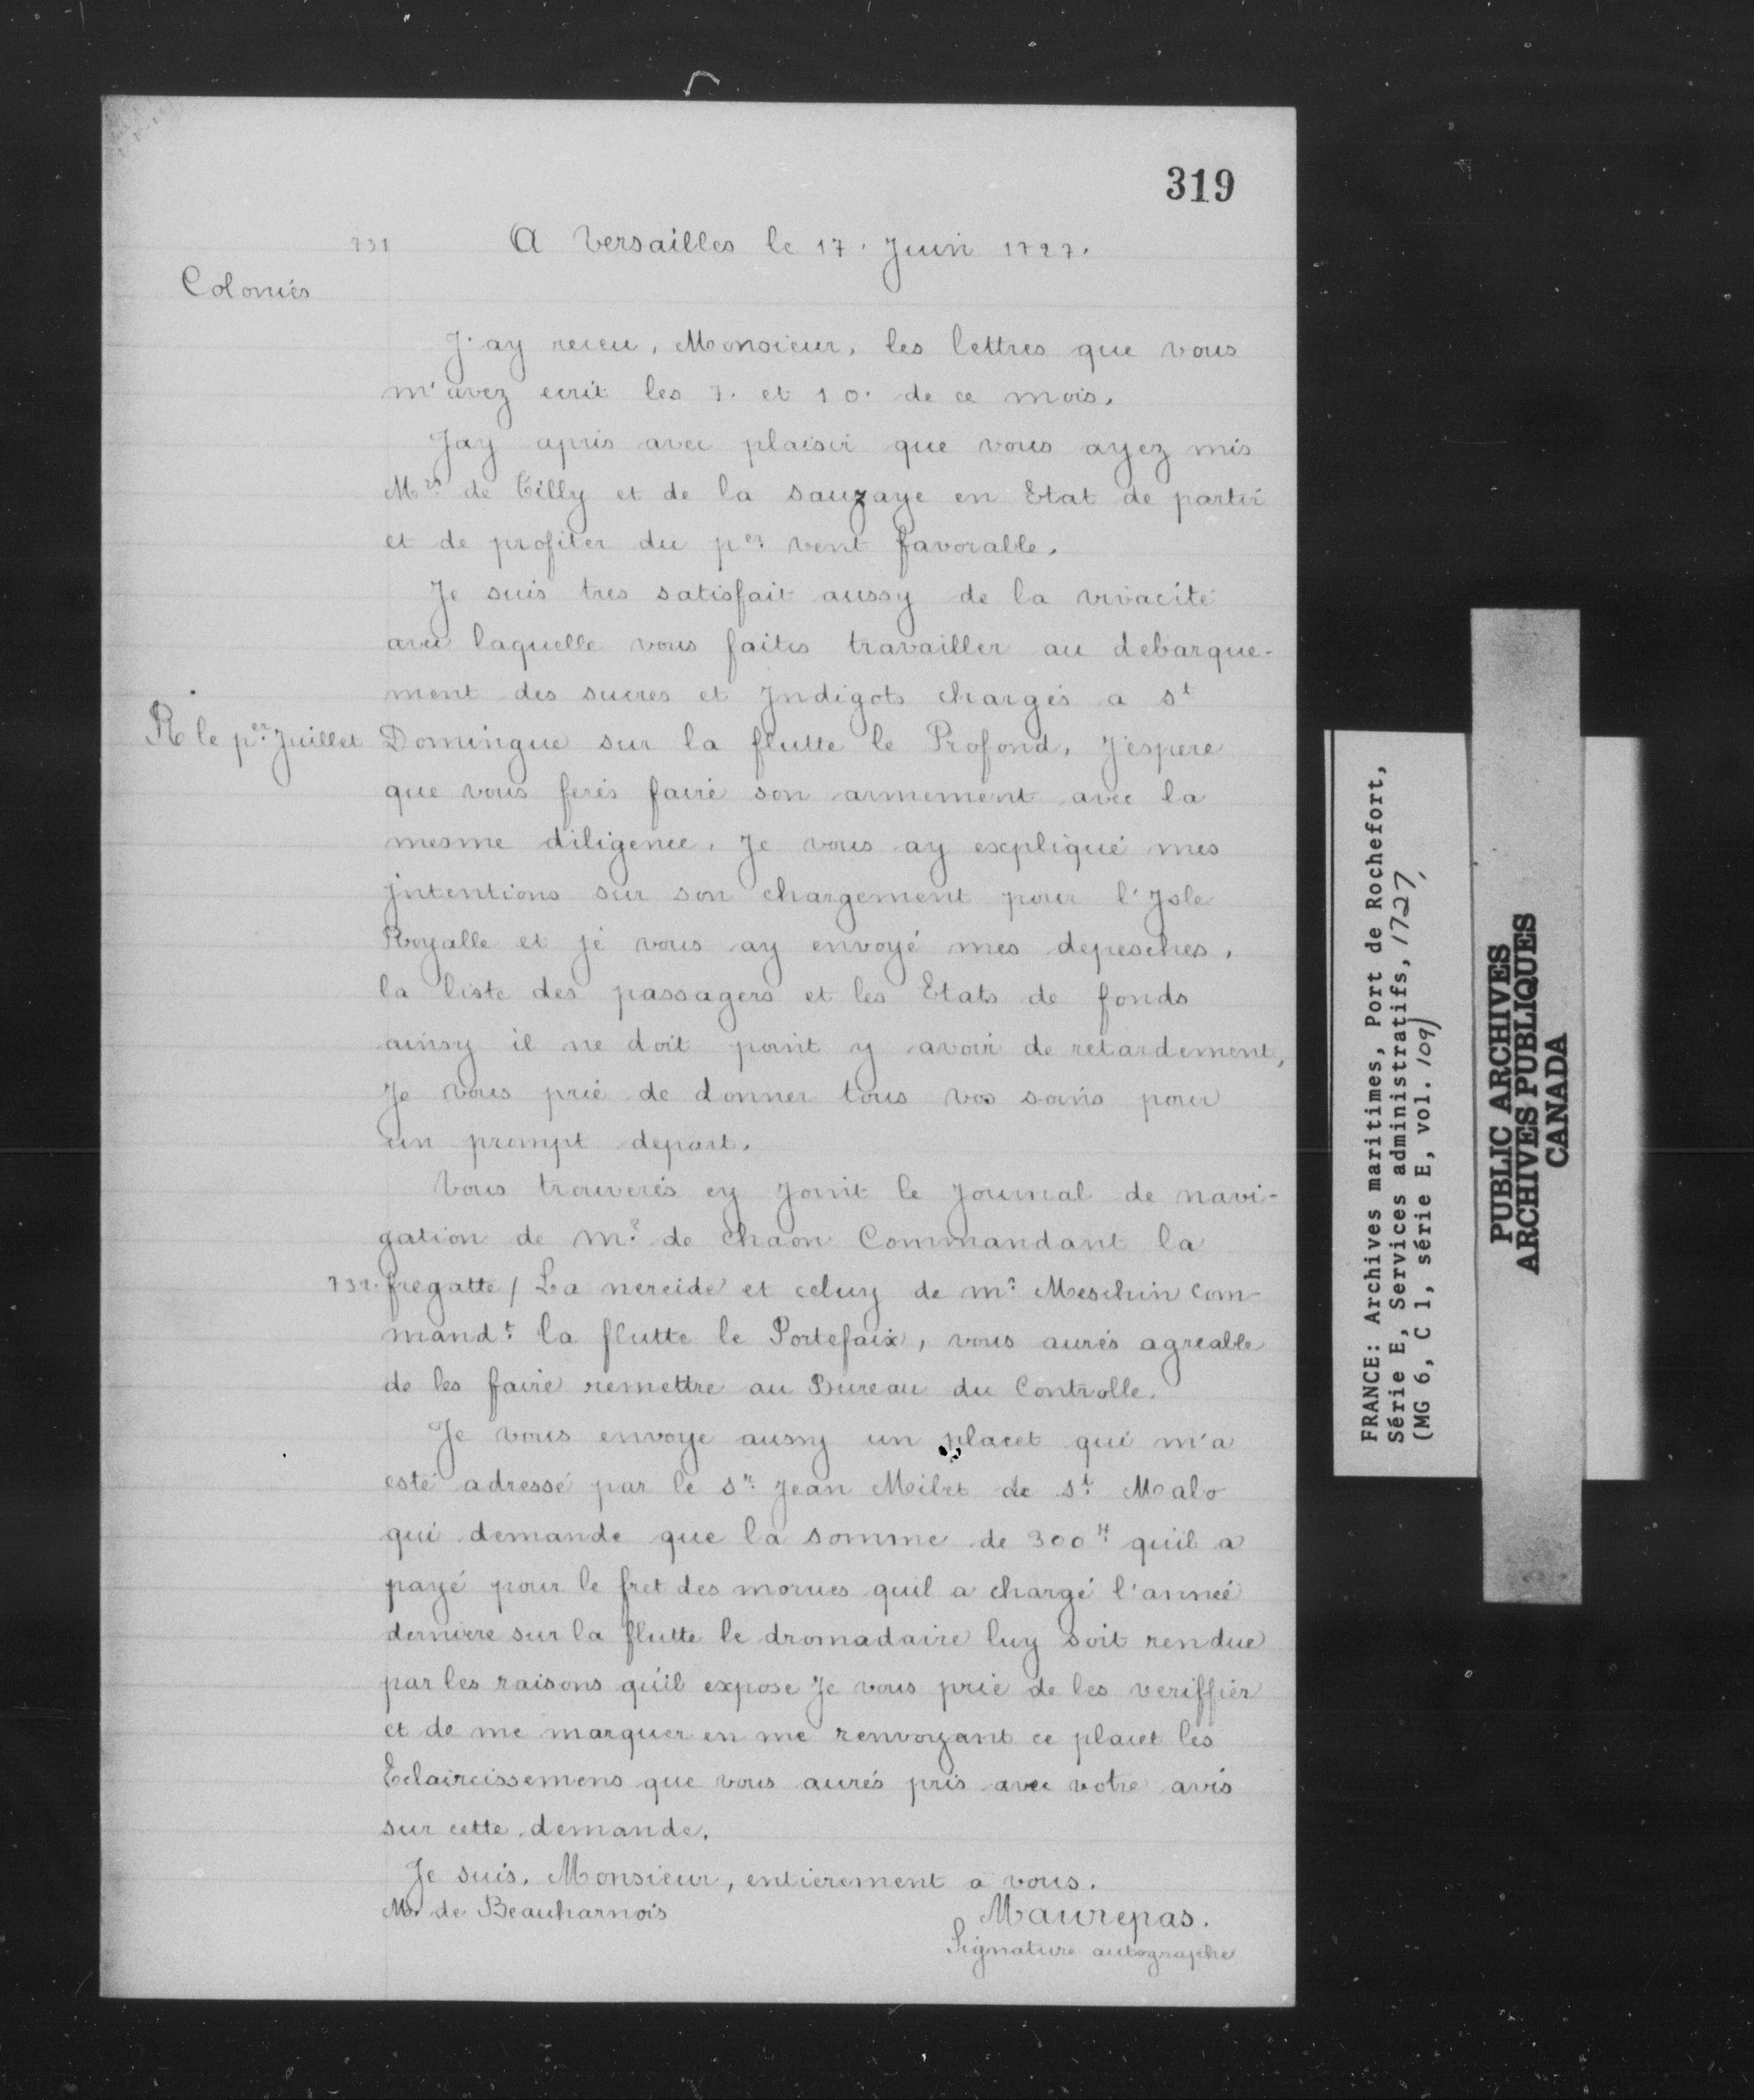 319
731 A Versailles le 17. Juin 1727.
Colonies
J'ay receu, Monsieur, les lettres que vous
m'avez ecrit les 7. et 10. de ce mois.
Jay apris avec plaisir que vous ayez mis
Mrs. de Tilly et de la Sauzaye en Etat de partir
et de profiter du per. vent favorable.
Je suis tres satisfait aussy de la vivacité
avec laquelle vous faites travailler au debarque-
ment des sucres et Jndigots chargés a st
R le per. Juillet Domingue sur la flutte le Profond. J'espere
que vous ferés faire son armement avec la
mesme diligence. Je vous ay expliqué mes
jntentions sur son chargement pour l'Jsle
Royalle et je vous ay envoyé mes depesches,
la liste des passagers et les Etats de fonds
ainsy il ne doit point y avoir de retardement,
Je vous prie de donner tous vos soins pour
un prompt depart.
Vous trouverés cy Joint le Journal de navi-
gation de mr. de Chaon Commandant la
732. fregatte / La nereide et celuy de mr. Meschin Com-
mandt. la flutte le Portefaix, vous aurés agreable
de les faire remettre au Bureau du Controlle.
Je vous envoye aussy un placet qui m'a
esté adressé par le sr. Jean Milet de st. Malo
qui demande que la somme de 300tt qu'il a
payé pour le fret des morues quil a chargé l'année
derniere sur la flutte le dromadaire luy soit rendue
par les raisons qu'il expose Je vous prie de les veriffiér
et de me marquer en me renvoyant ce placet les
Eclaircissemens que vous aurés pris avec votre avis
sur cette demande.
Je suis, Monsieur, entierement a vous.
M. de Beauharnois Maurepas.
Signature autographe
FRANCE: Archives maritimes, Port de Rochefort,
Série E, Services administratifs, 1727,
(MG 6, C 1, série E, vol. 109)
PUBLIC ARCHIVES
ARCHIVES PUBLIQUES
CANADA